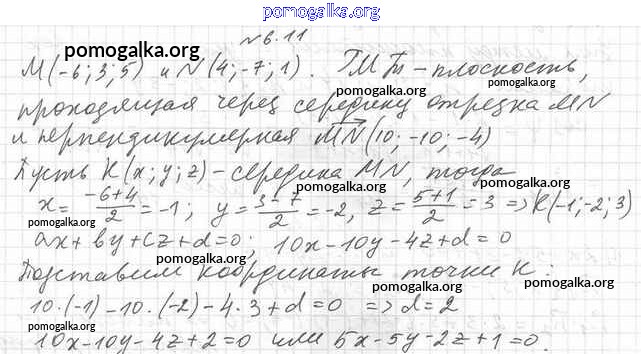 pomogalka.org
№6.11
М(-6; 3; 5) и N(4; -7; 1). ГМТ – плоскость,
проходящая через середину отрезка MN
и перпендикулярная MN(10; -10; -4)
Пусть K(x; y; z) – середина MN, тогда
x = (-6+4)/2 = -1; y = (3-7)/2 = -2, z = (5+1)/2 = 3 => K(-1; -2; 3)
ax + by + cz + d = 0; 10x - 10y - 4z + d = 0
Подставим координаты точки K:
10·(-1) - 10·(-2) - 4·3 + d = 0 => d = 2
10x - 10y - 4z + 2 = 0 или 5x - 5y - 2z + 1 = 0.
pomogalka.org
pomogalka.org
pomogalka.org
pomogalka.org
pomogalka.org
pomogalka.org
pomogalka.org
pomogalka.org
pomogalka.org
pomogalka.org